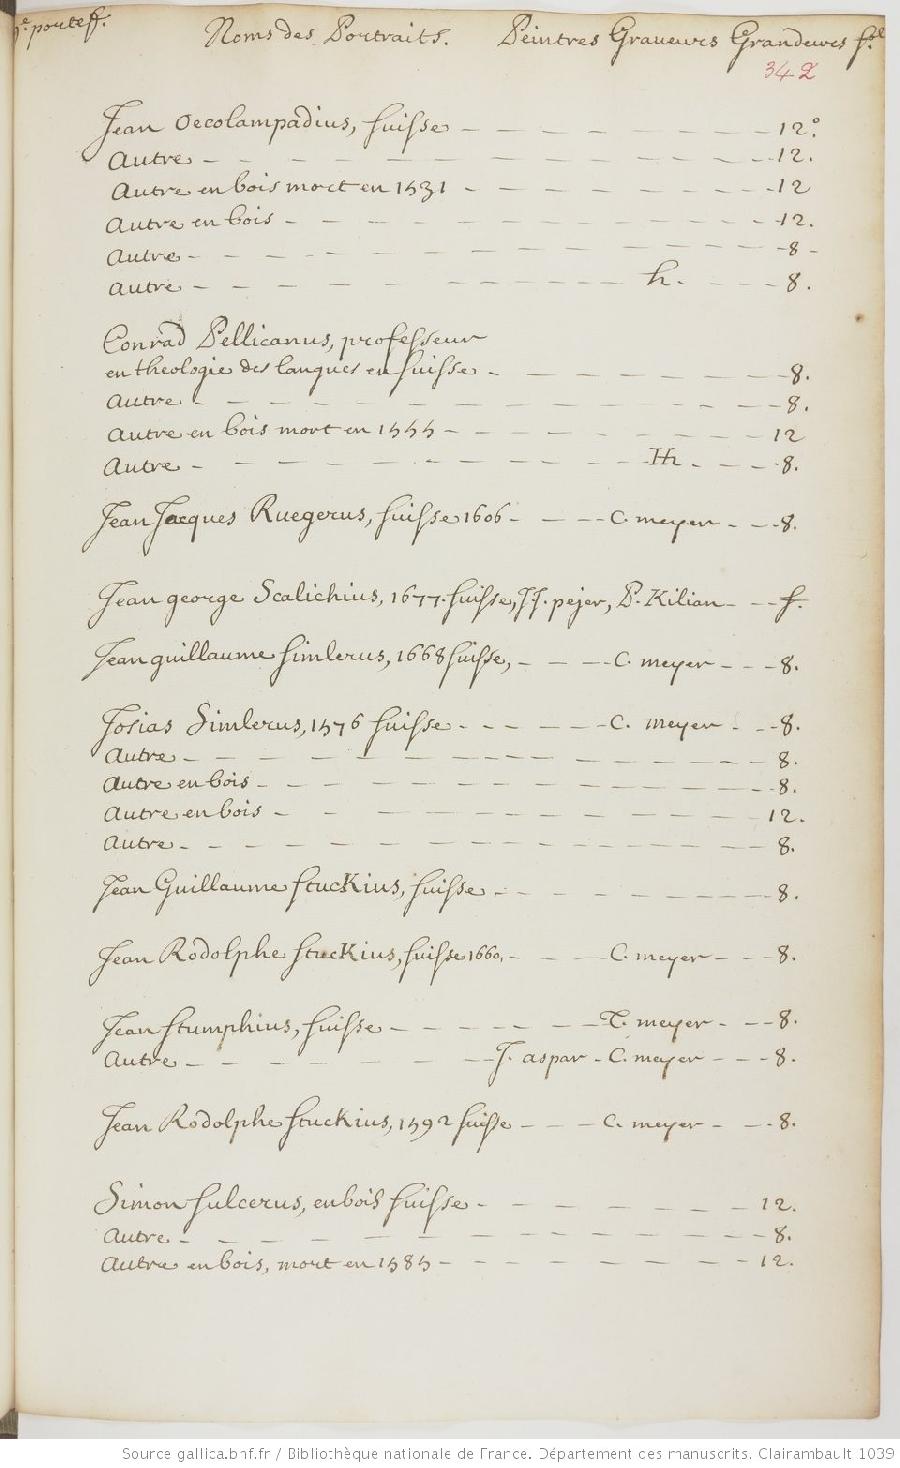 portef. Noms des Portraits. Peintres Graveurs Grandeurs f.el
342
Jean Oecolampadius, Suisse — 12°.
Autre — 12.
Autre en bois mort en 1531 — 12
Autre en bois — 12.
Autre — 8
Autre — h. — 8.
Conrad Pellicanus, professeur
en theologie des langues en Suisse — 8.
Autre — 8.
Autre en bois mort en 1555 — 12
Autre — Hh. — 8.
Jean Jacques Ruegerus, Suisse 1606 — C. meyer — 8.
Jean george Scalichius, 1677. Suisse, J.J. pejer, P. Kilian — f.
Jean guillaume Simlerus, 1668 Suisse, — C. meyer — 8.
Josias Simlerus, 1576 Suisse — C. meyer — 8.
Autre — 8.
Autre en bois — 8.
Autre en bois — 12.
Autre — 8.
Jean Guillaume Stuckius, Suisse — 8.
Jean Rodolphe Stuckius, Suisse 1660, — C. meyer — 8.
Jean Stumphius, Suisse — T. meyer — 8.
Autre — J. aspar — C. meyer — 8.
Jean Rodolphe Stuckius, 1592 Suisse — C. meyer — 8.
Simon Sulcerus, en bois Suisse — 12.
Autre — 8.
Autre en bois, mort en 1585 — 12.
Source gallica.bnf.fr / Bibliothèque nationale de France. Département des manuscrits. Clairambault 1039